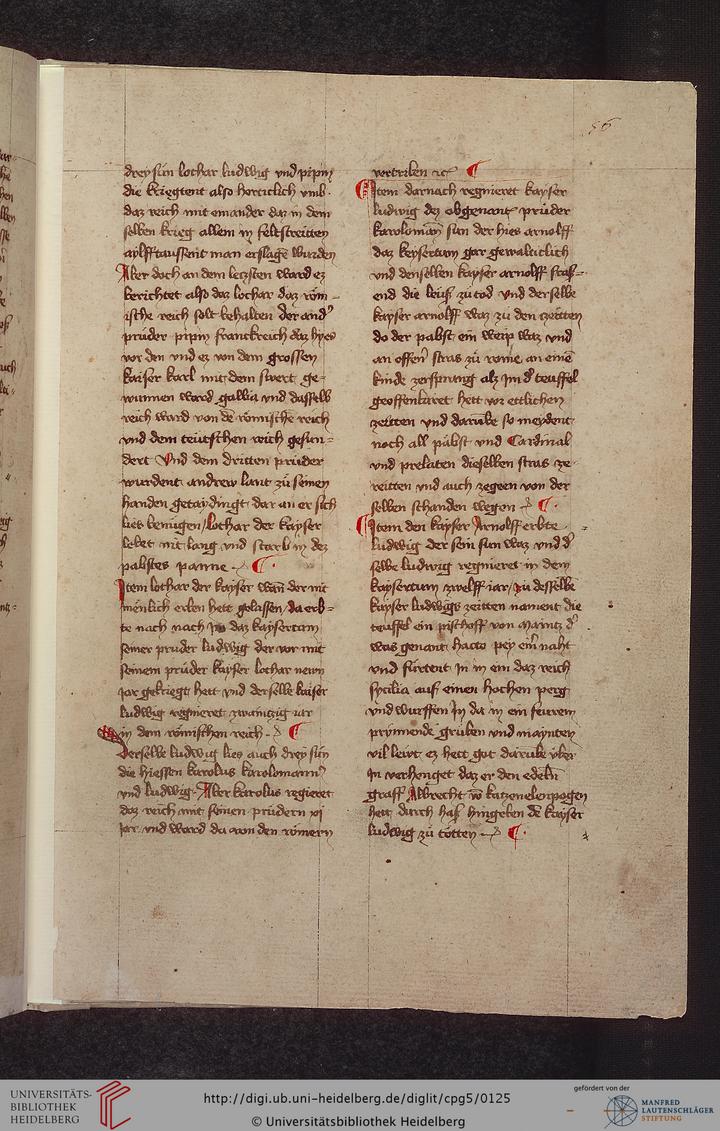 56
drey sün lothar ludwig vnd pipin
die kriegtent also hertticlich vmb
daz reich mit einander daz in dem
selben krieg allein in feltstreitten
aylfftaussent man erslagē wurden
Aber doch an dem letzsten ward ez
berichtet also daz lothar daz röm-
ische reich solt behalten der and'
prüder pipin franckreich daz hyes
vor den vnd ez von dem grossen
kaiser karl mit dem swert ge-
wunnen ward gallia vnd dasselb
reich ward von dē römischē reich
vnd dem teütschen reich gesun-
dert Vnd dem dritten prüder
wurdent andrew lant zü seinen
handen getaydingt dar an er sich
lies benügen / lothar der kayser
lebet nit lang vnd starb in dez
pabstes panne
Item lothar der kayser wan der nit
menlich erben hett gelassen / da erb-
te nach nach jm daz kaysertum
seiner prüder ludwig der vor mit
seinem prüder kayser lothar newn
jar gekriegt hett vnd derselbe kaiser
ludwig regnieret zwaintzig iar
in dem römischen reich
Derselbe ludwig lies auch drey sün
die hiessen karolus karolomann'
vnd ludwig Aber karolus regieret
daz reich mit seinen prüdern xj
jar vnd ward da von den römern
vertriben
Item darnach regnieret kayser
ludwig dez obgenant prüder
karoloman sun der hies arnolff
daz keysertum gar gewalticlich
vnd denselben kayser arnolff
end die leüß zü tod vnd derselbe
kayser arnolff waz zü den zeitten
do der pabst ein weip waz vnd
an offen' stras zü rome an einē
kinde zersprang alz jm d' teuffel
geoffenbaret hett vor ettlichen
zeitten vnd darūbe so meydent
noch all päbst vnd Cardinal
vnd prelaten dieselben stras ze
reitten vnd auch zegeen von der
selben schanden wegen
Item den kayser Arnolff erbte
ludwig der sein sun waz vnd d'
selbe ludwig regnieret in dem
kaysertum zwelff iar / zü desselbē
kayser ludwigs zeitten nament die
teuffel ein pischoff von maintz d'
was genant hatto pey ein' naht
vnd fürtent jn in ein daz reich
sycilia auf einen hochen perg
vnd wurffen jn da in ein feurein
prynnende grüben vnd maynten
vil lewt ez hett got darūbe vber
jn verhenget daz er den edeln
graff Albrecht vō katzenelenpogen
hett durch haß hingeben dē kayser
ludwig zü tötten
UNIVERSITÄTS-
BIBLIOTHEK
HEIDELBERG
http://digi.ub.uni-heidelberg.de/diglit/cpg5/0125
© Universitätsbibliothek Heidelberg
gefördert von der
MANFRED
LAUTENSCHLÄGER
STIFTUNG